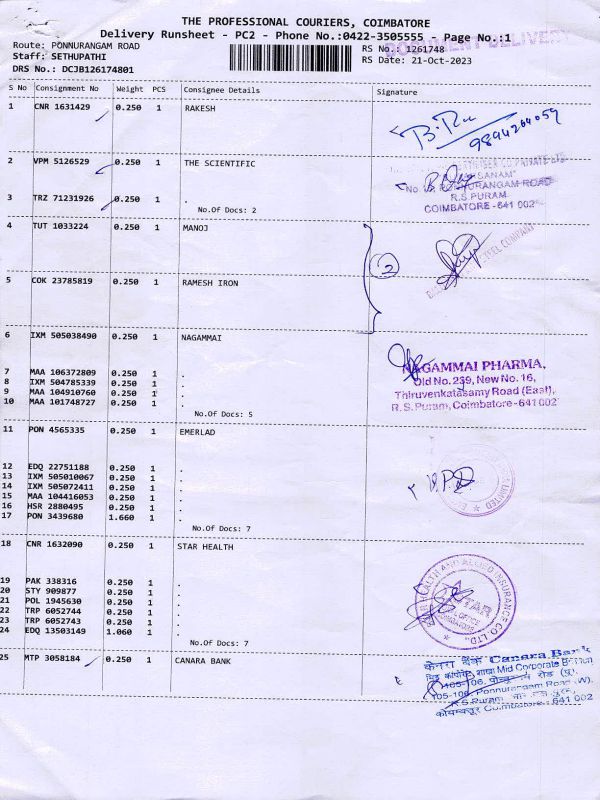 THE PROFESSIONAL COURIERS, COIMBATORE
Delivery Runsheet - PC2 - Phone No.:0422-3505555 - Page No.:1
Route: PONNURANGAM ROAD
Staff: SETHUPATHI
DRS No.: DCJB126174801
RS No.: 1261748
RS Date: 21-Oct-2023
DOCUMENT DELIVERY
S No Consignment No Weight PCS Consignee Details Signature
1 CNR 1631429 0.250 1 RAKESH
9894264059
2 VPM 5126529 0.250 1 THE SCIENTIFIC
3 TRZ 71231926 0.250 1 .
No.Of Docs: 2
"SANAM"
PONNURANGAM ROAD
R.S.PURAM,
COIMBATORE - 641 002
4 TUT 1033224 0.250 1 MANOJ
2
STEEL COMPANY
5 COK 23785819 0.250 1 RAMESH IRON
6 IXM 505038490 0.250 1 NAGAMMAI
7 MAA 106372809 0.250 1 .
8 IXM 504785339 0.250 1 .
9 MAA 104910760 0.250 1 .
10 MAA 101748727 0.250 1 .
No.Of Docs: 5
NAGAMMAI PHARMA,
Old No.239, New No. 16,
Thiruvenkatasamy Road (East),
R.S.Puram, Coimbatore-641 002
11 PON 4565335 0.250 1 EMERLAD
12 EDQ 22751188 0.250 1 .
13 IXM 505010067 0.250 1 .
14 IXM 505072411 0.250 1 .
15 MAA 104416053 0.250 1 .
16 HSR 2880495 0.250 1 .
17 PON 3439680 1.660 1 .
No.Of Docs: 7
18 CNR 1632090 0.250 1 STAR HEALTH
19 PAK 338316 0.250 1 .
20 STY 909877 0.250 1 .
21 POL 1945630 0.250 1 .
22 TRP 6052744 0.250 1 .
23 TRP 6052743 0.250 1 .
24 EDQ 13503149 1.060 1 .
No.Of Docs: 7
STAR HEALTH AND ALLIED INSURANCE CO. LTD.
STAR
OFFICE
COIMBATORE
25 MTP 3058184 0.250 1 CANARA BANK
केनरा बैंक Canara Bank
शाखा Mid Corporate Branch
105-106,
105-106, Ponnurangam Road (W),
R.S.Puram,
कोयम्बत्तूर Coimbatore - 641 002